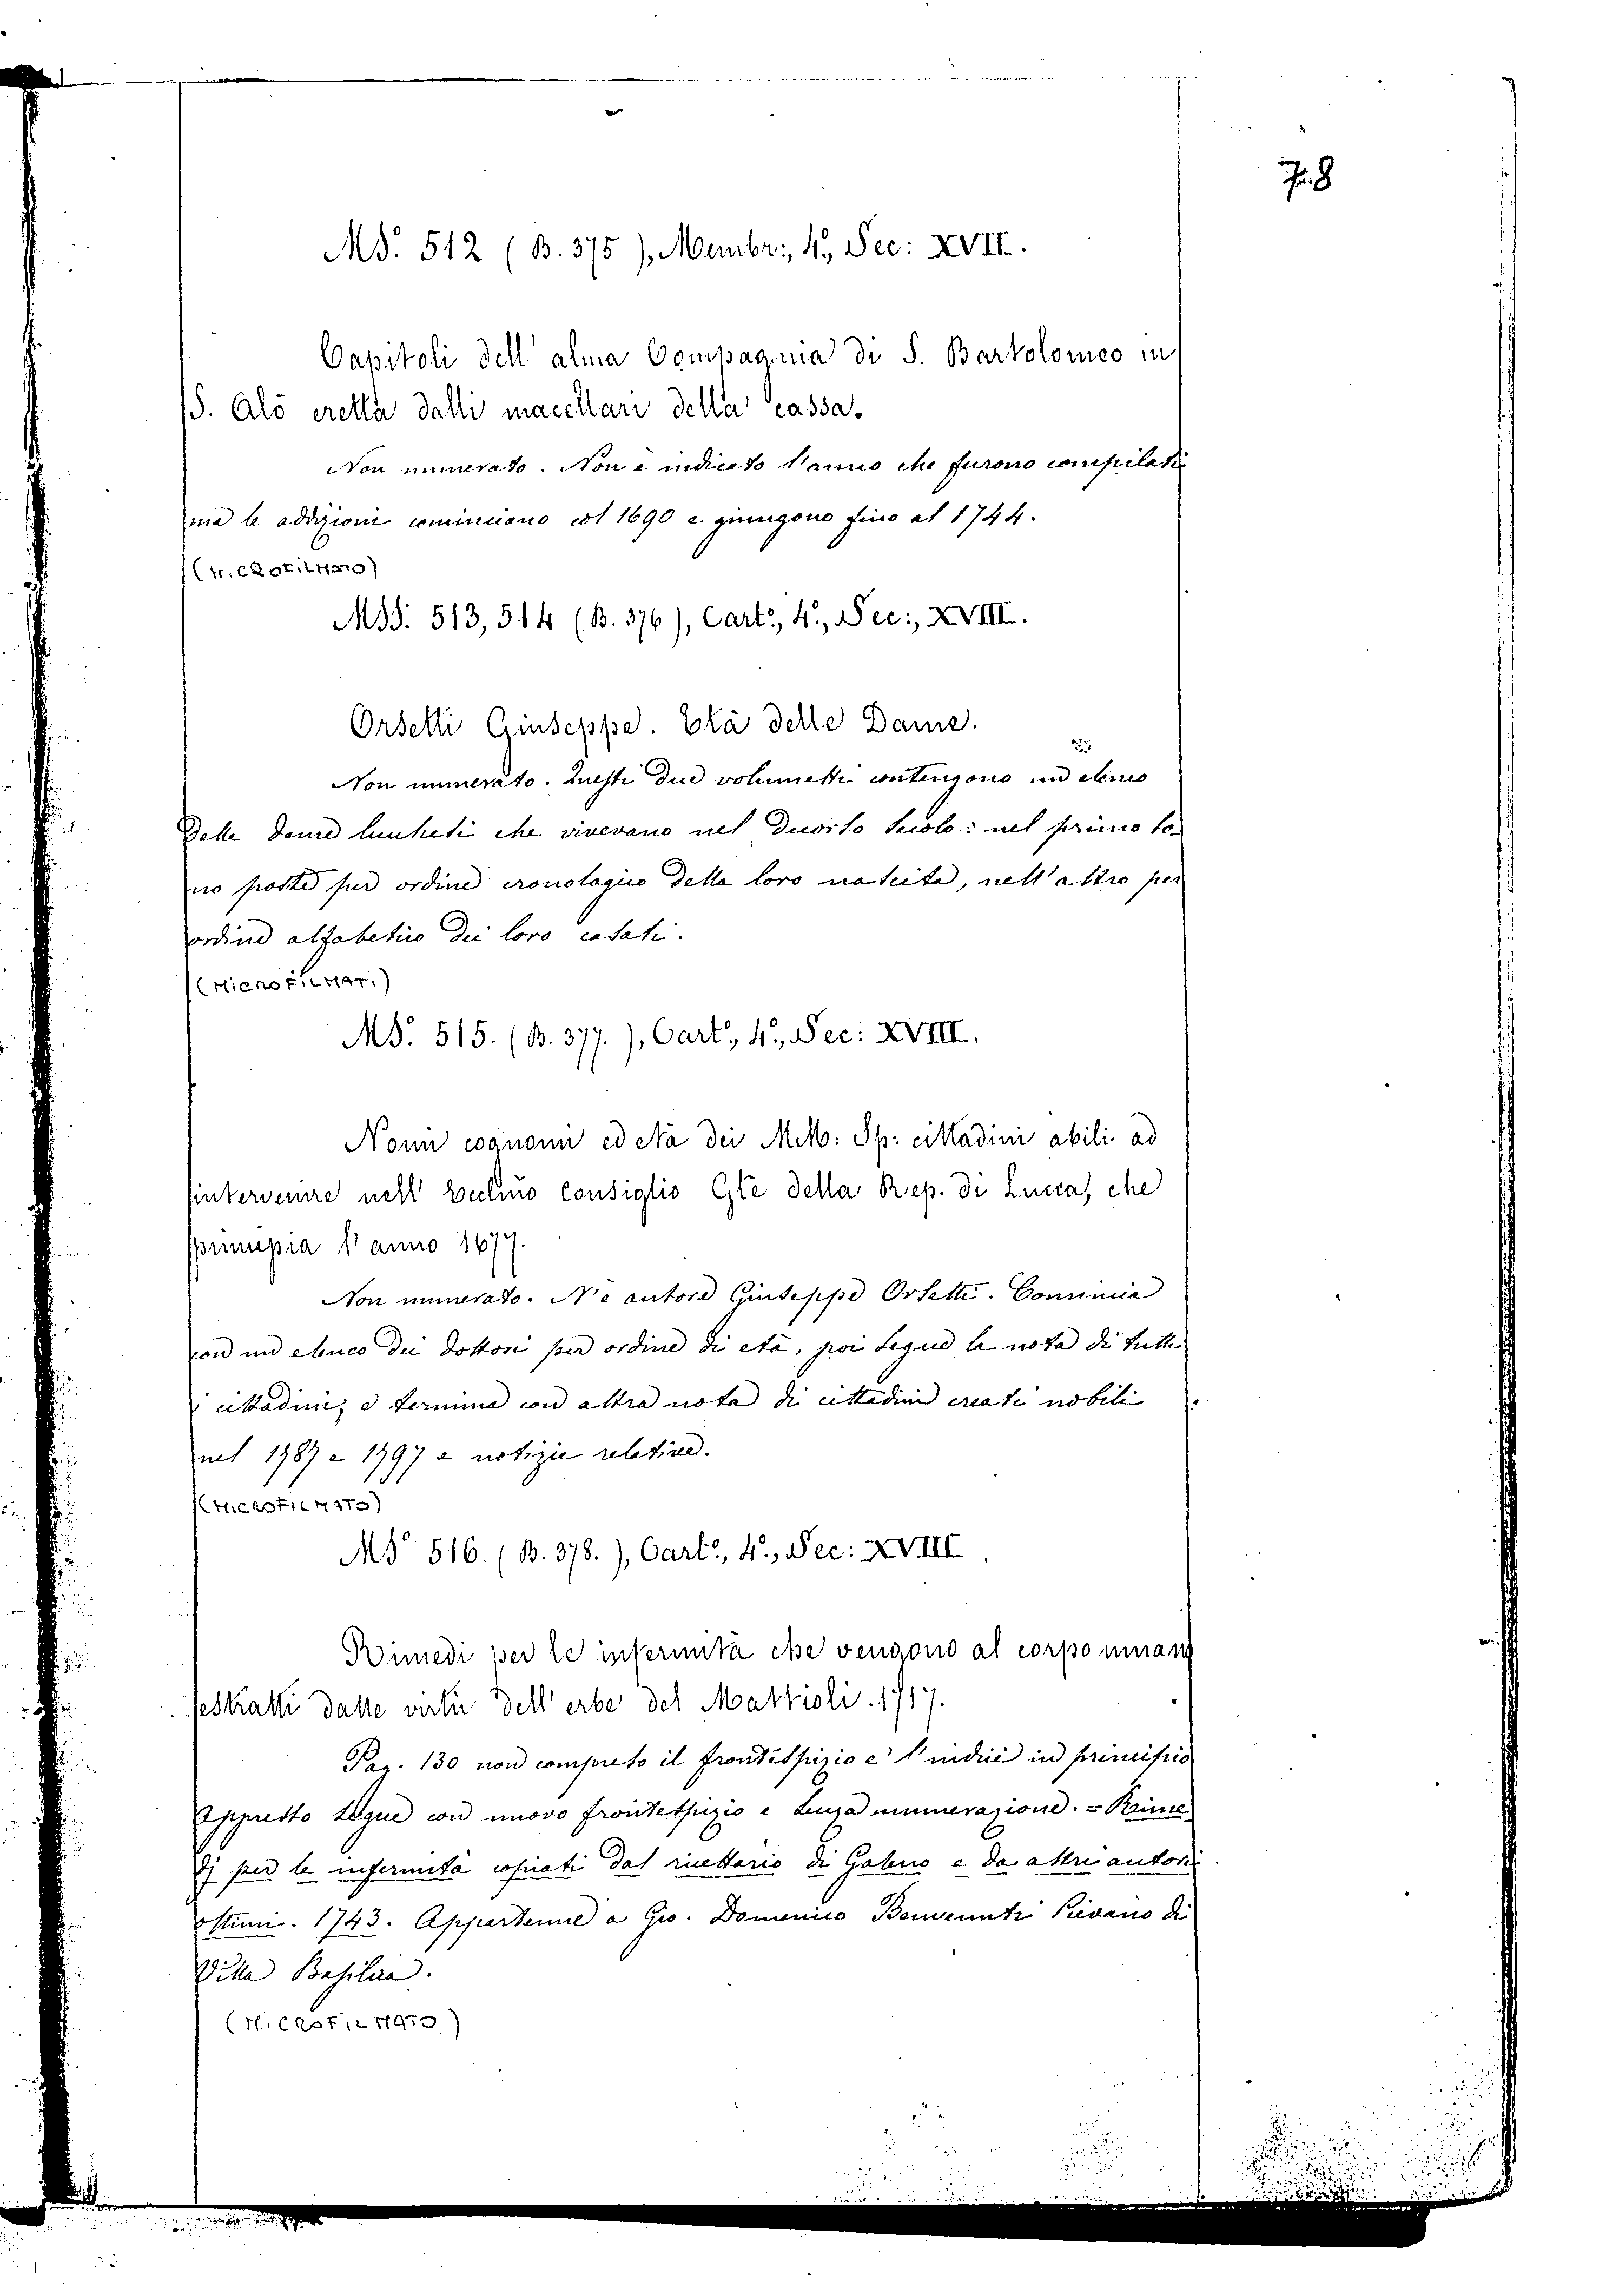 78
MS. 512 (B. 375), Membr:, 4º, Sec: XVII.
Capitoli dell' alma Compagnia di S. Bartolomeo in
S. Alò eretta dalli macellari della cassa.
Non numerato. Non è indicato l'anno che furono compilati
ma le addizioni cominciano col 1690 e giungono fino al 1744.
(MICROFILMATO)
MSS. 513, 514 (B. 376), Cart:, 4º, Sec:, XVIII.
Orsetti Giuseppe. Età delle Dame.
Non numerato. Questi due volumetti contengono un elenco
delle dame lucchesi che vivevano nel decorso secolo: nel primo so-
no poste per ordine cronologico della loro nascita, nell'altro per
ordine alfabetico dei loro casati.
(MICROFILMAT.)
MS. 515. (B. 377.), Cart:, 4º, Sec: XVIII.
Nomi cognomi ed età dei MM: Sp: cittadini abili ad
intervenire nell' Eccmo Consiglio Gle della Rep. di Lucca, che
principia l'anno 1677.
Non numerato. N'è autore Giuseppe Orsetti. Comincia
con un elenco dei dottori per ordine di età, poi segue la nota di tutti
i cittadini; e termina con altra nota di cittadini creati nobili
nel 1787 e 1797 e notizie relative.
(MICROFILMATO)
MS 516. (B. 378.), Cart:, 4º, Sec: XVIII
Rimedi per le infermità che vengono al corpo uman
estratti dalle virtù dell' erbe del Mattioli. 1717.
Pag. 130 non compreso il frontespizio e l'indice in principio
Appresso segue con nuovo frontespizio e senza numerazione. = Rime-
dj per le infermità copiati dal ricettario di Galeno e da altri autori
ottimi. 1743. Appartenne a Gio. Domenico Benvenuti Pievano di
Villa Basilica.
(MICROFILMATO)